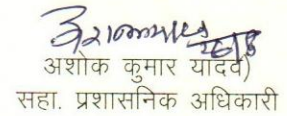 अशोक कुमार यादव)
सहा. प्रशासनिक अधिकारी